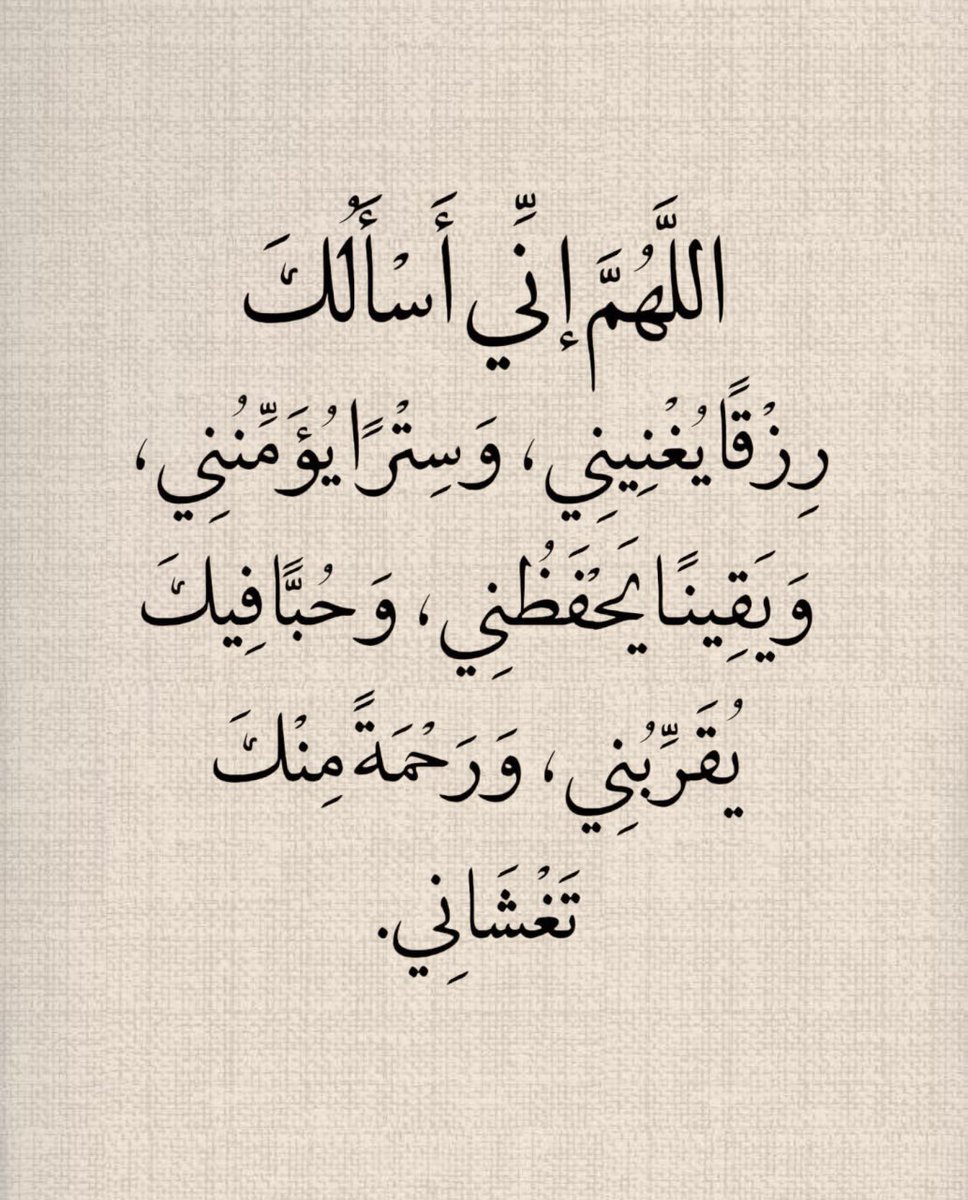 اللَّهُمَّ إِنِّي أَسْأَلُكَ
رِزْقًا يُغْنِينِي، وَسِتْرًا يُؤَمِّنُنِي،
وَيَقِينًا يَحْفَظُنِي، وَحُبًّا فِيكَ
يُقَرِّبُنِي، وَرَحْمَةً مِنْكَ
تَغْشَانِي.